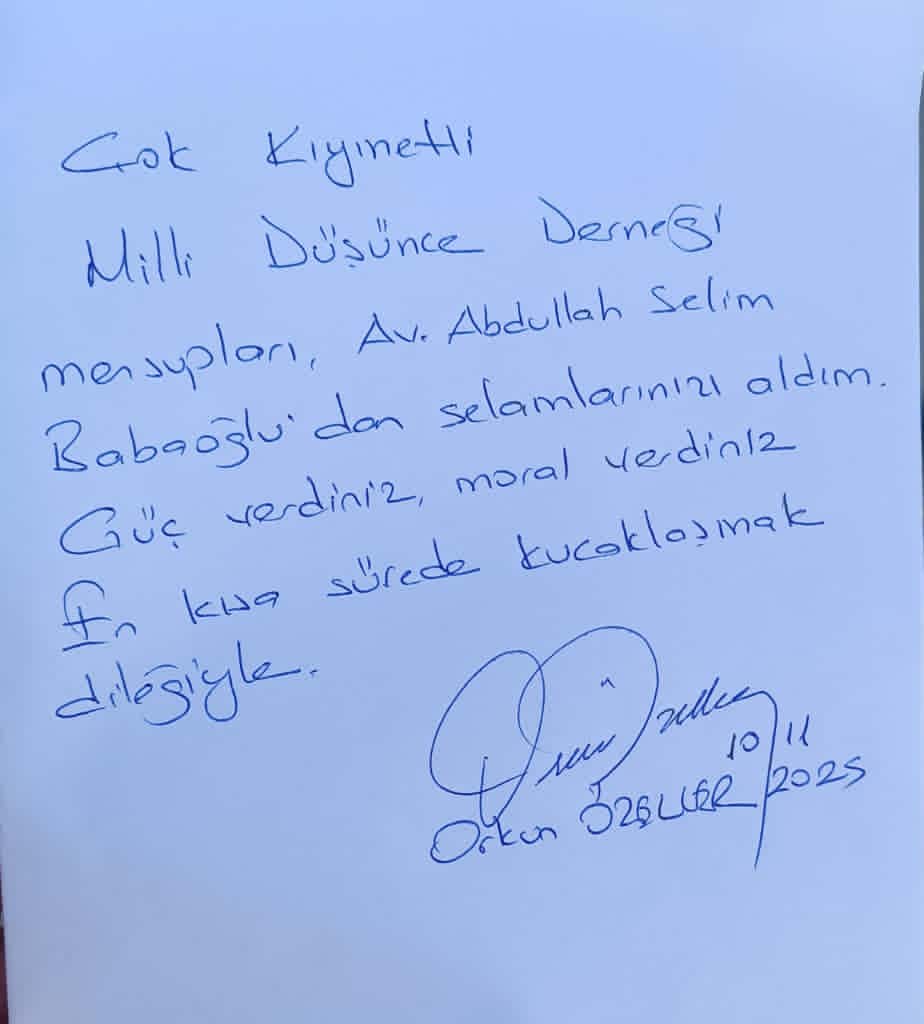 Çok Kıymetli
Milli Düşünce Derneği
mensupları, Av. Abdullah Selim
Babaoğlu'dan selamlarınızı aldım.
Güç verdiniz, moral verdiniz
En kısa sürede kucaklaşmak
dileğiyle.
10/11
Orkun ÖZELLER /2025